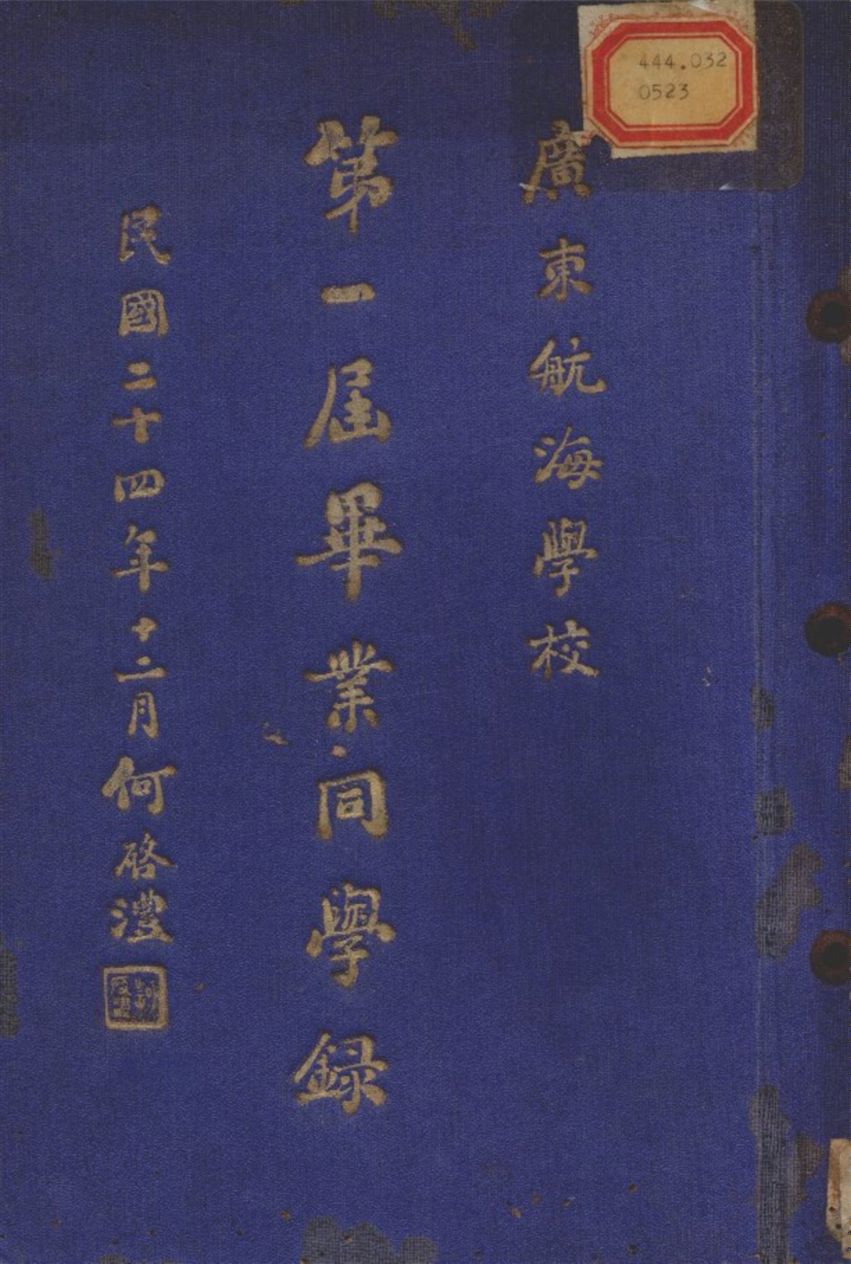 444.032
0523
廣東航海學校
第一届畢業同學録
民國二十四年十二月何啓澧